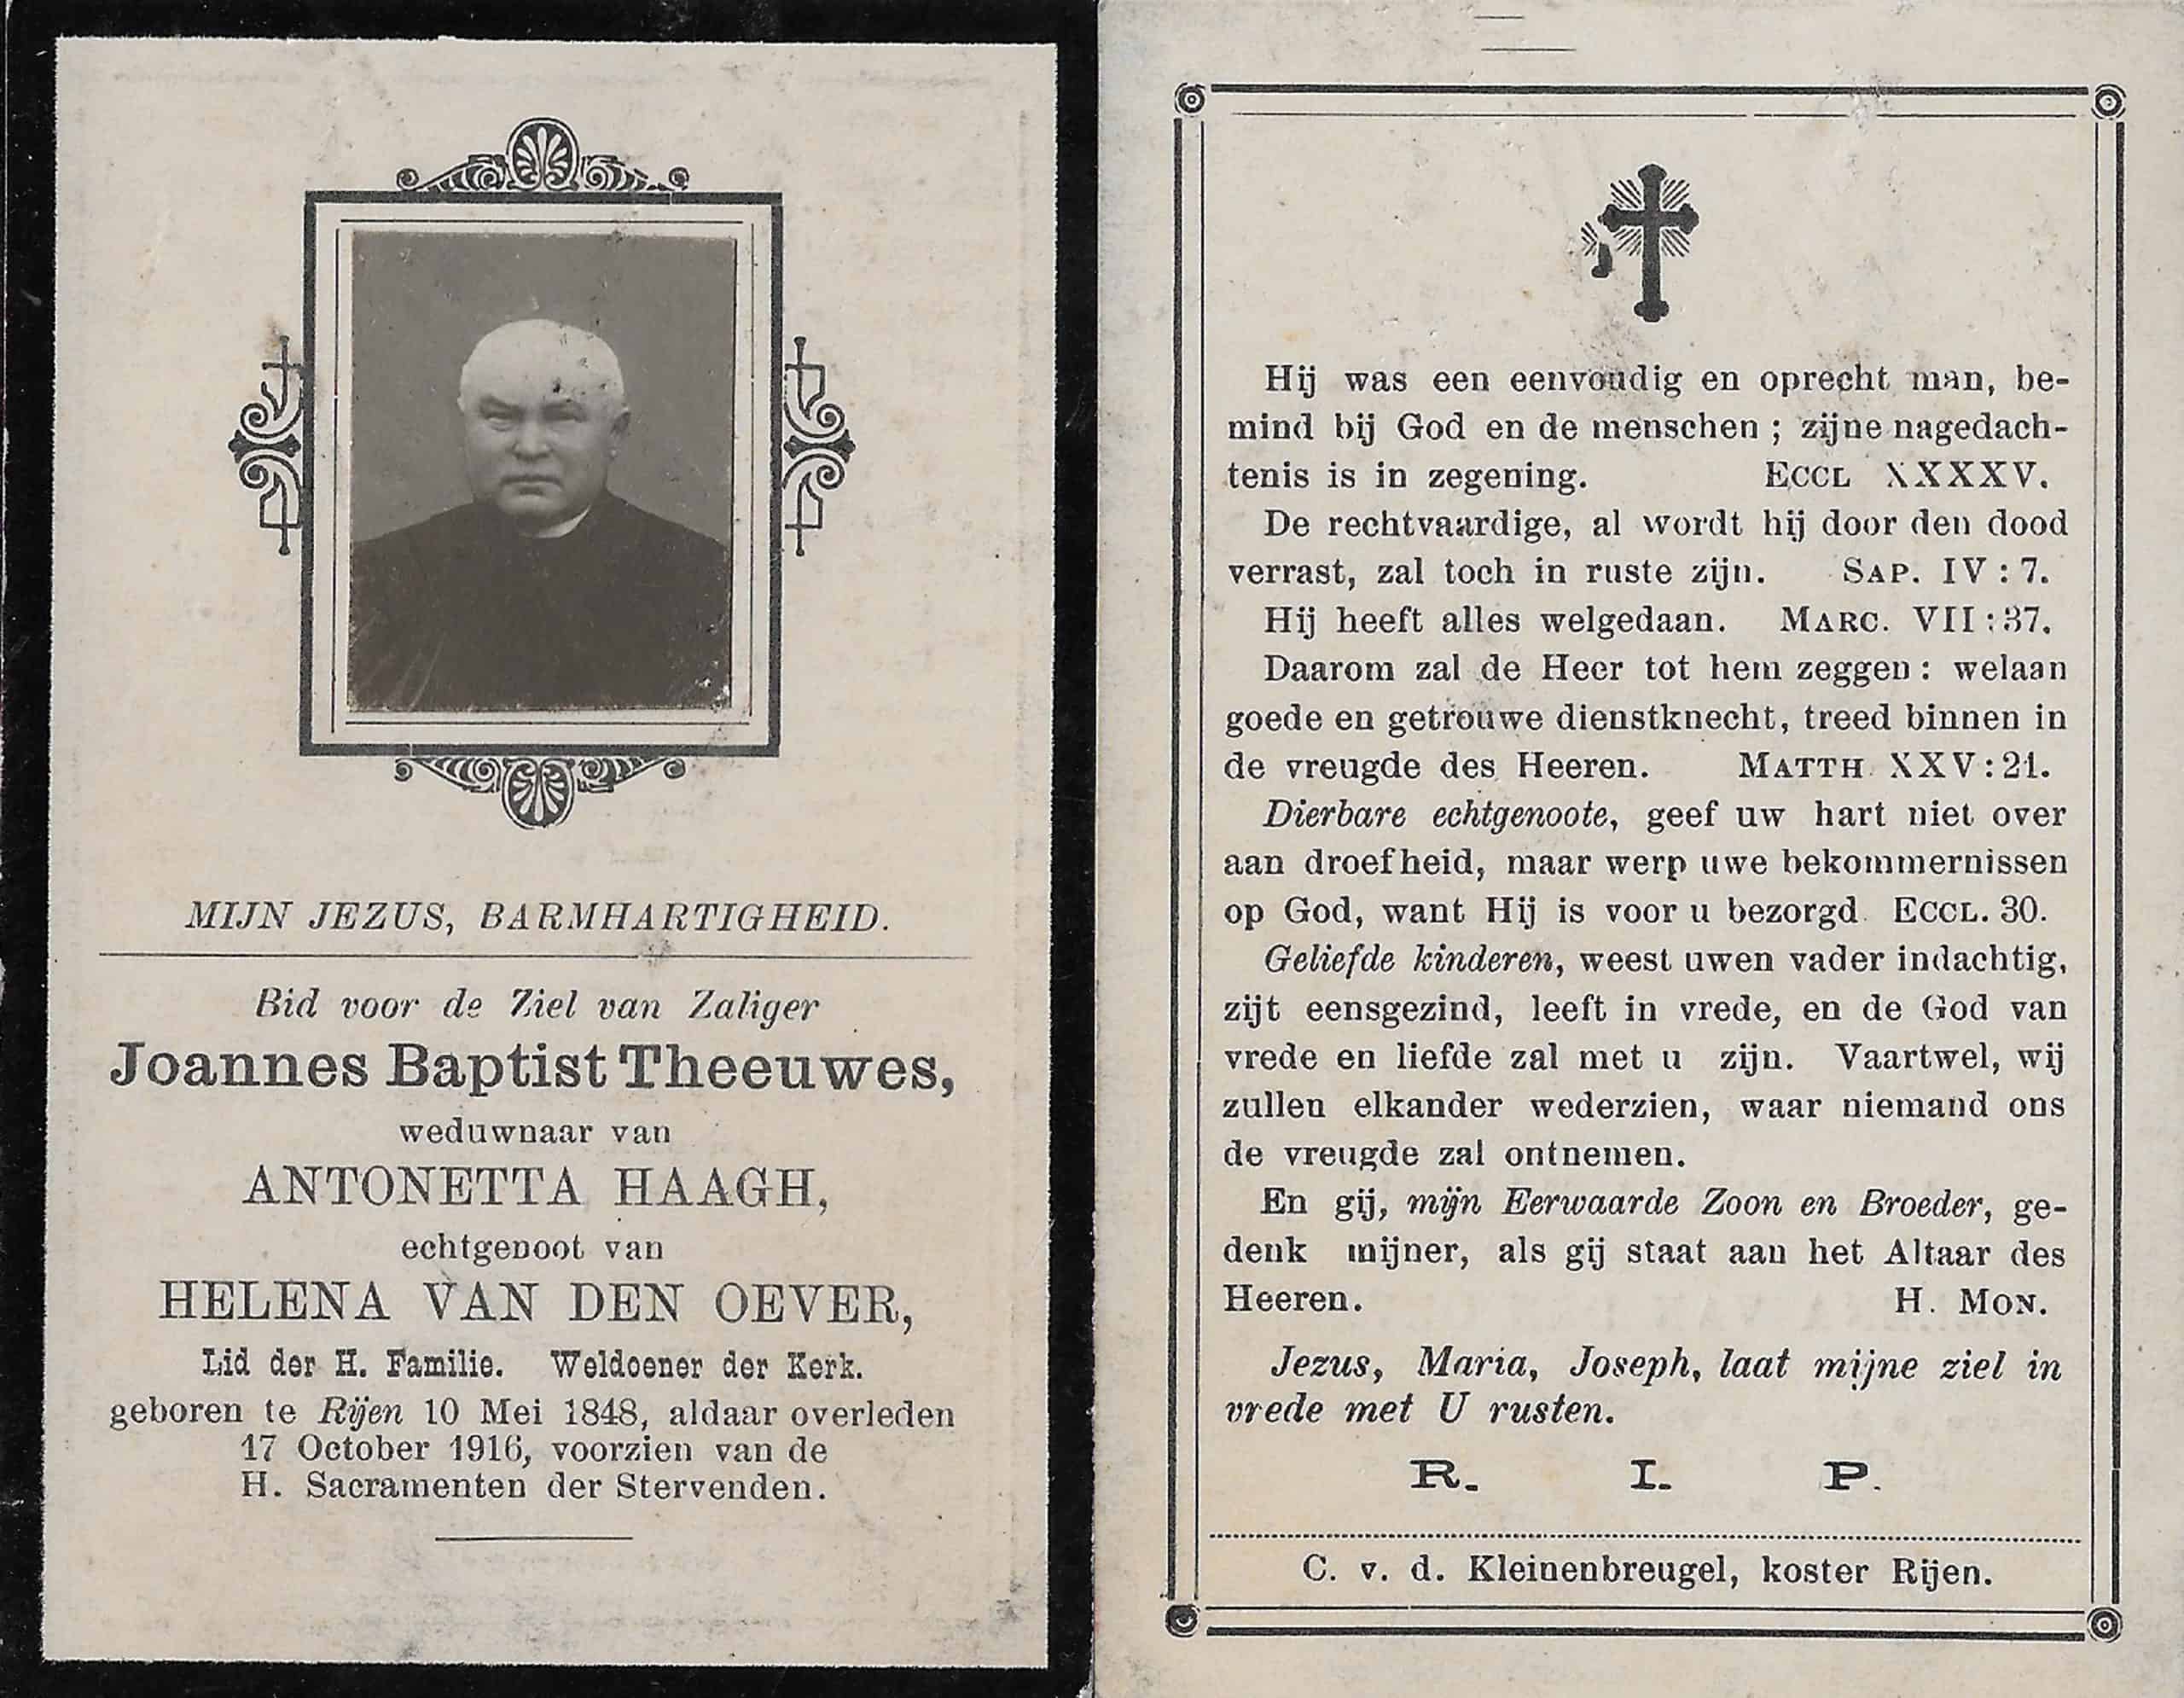 MIJN JEZUS, BARMHARTIGHEID.
Bid voor de Ziel van Zaliger
Joannes Baptist Theeuwes,
weduwnaar van
ANTONETTA HAAGH,
echtgenoot van
HELENA VAN DEN OEVER,
Lid der H. Familie. Weldoener der Kerk.
geboren te Rijen 10 Mei 1848, aldaar overleden
17 October 1916, voorzien van de
H. Sacramenten der Stervenden.
Hij was een eenvoudig en oprecht man, be-
mind bij God en de menschen ; zijne nagedach-
tenis is in zegening. ECCL XXXXV.
De rechtvaardige, al wordt hij door den dood
verrast, zal toch in ruste zijn. SAP. IV : 7.
Hij heeft alles welgedaan. MARC. VII : 37.
Daarom zal de Heer tot hem zeggen : welaan
goede en getrouwe dienstknecht, treed binnen in
de vreugde des Heeren. MATTH XXV : 21.
Dierbare echtgenoote, geef uw hart niet over
aan droefheid, maar werp uwe bekommernissen
op God, want Hij is voor u bezorgd. ECCL. 30.
Geliefde kinderen, weest uwen vader indachtig,
zijt eensgezind, leeft in vrede, en de God van
vrede en liefde zal met u zijn. Vaartwel, wij
zullen elkander wederzien, waar niemand ons
de vreugde zal ontnemen.
En gij, mijn Eerwaarde Zoon en Broeder, ge-
denk mijner, als gij staat aan het Altaar des
Heeren. H. MON.
Jezus, Maria, Joseph, laat mijne ziel in
vrede met U rusten.
R. I. P.
C. v. d. Kleinenbreugel, koster Rijen.